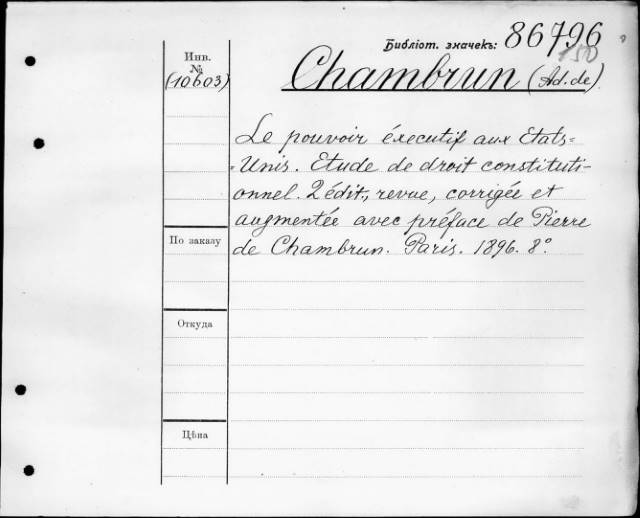 Библіот. значекъ: 86796
150
Инв.
№
(10603)
Chambrun (Ad. de)
Le pouvoir éxecutif aux Etats-
-Unis. Etude de droit constituti-
onnel. 2 édit., revue, corrigée et
augmentée avec préface de Pierre
de Chambrun. Paris. 1896. 8°.
По заказу
Откуда
Цѣна